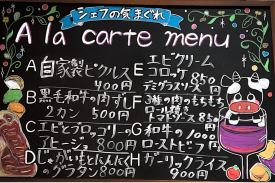 シェフの気まぐれ
A la carte menu
A 自家製ピクルス
400円
B 黒毛和牛の肉すし
2カン 500円
C エビとブロッコリーの
アヒージョ 800円
D じゃがいもとにんにく
のグラタン 800円
E エビクリーム
コロッケ 850円
デミグラスソース
F 3種の肉のもちもち
トマトソース 850円
G 和牛の 100円
ローストビーフ
H ガーリックライス
900円